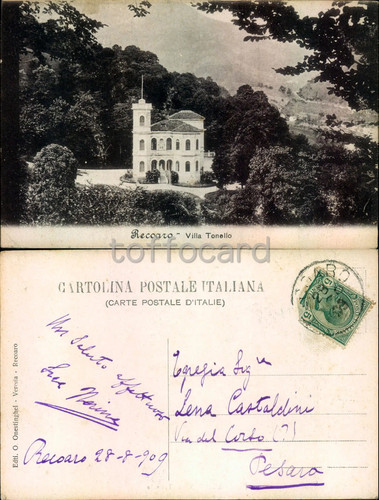 Recoaro - Villa Tonello
toffocard
CARTOLINA POSTALE ITALIANA
(CARTE POSTALE D'ITALIE)
Un saluto affettuoso
Egregia Sig.ra
Lena Castaldini
Via del Corso (?)
Pesaro
Recoaro 28-8-909
Edit. O. - Verona - Recoaro